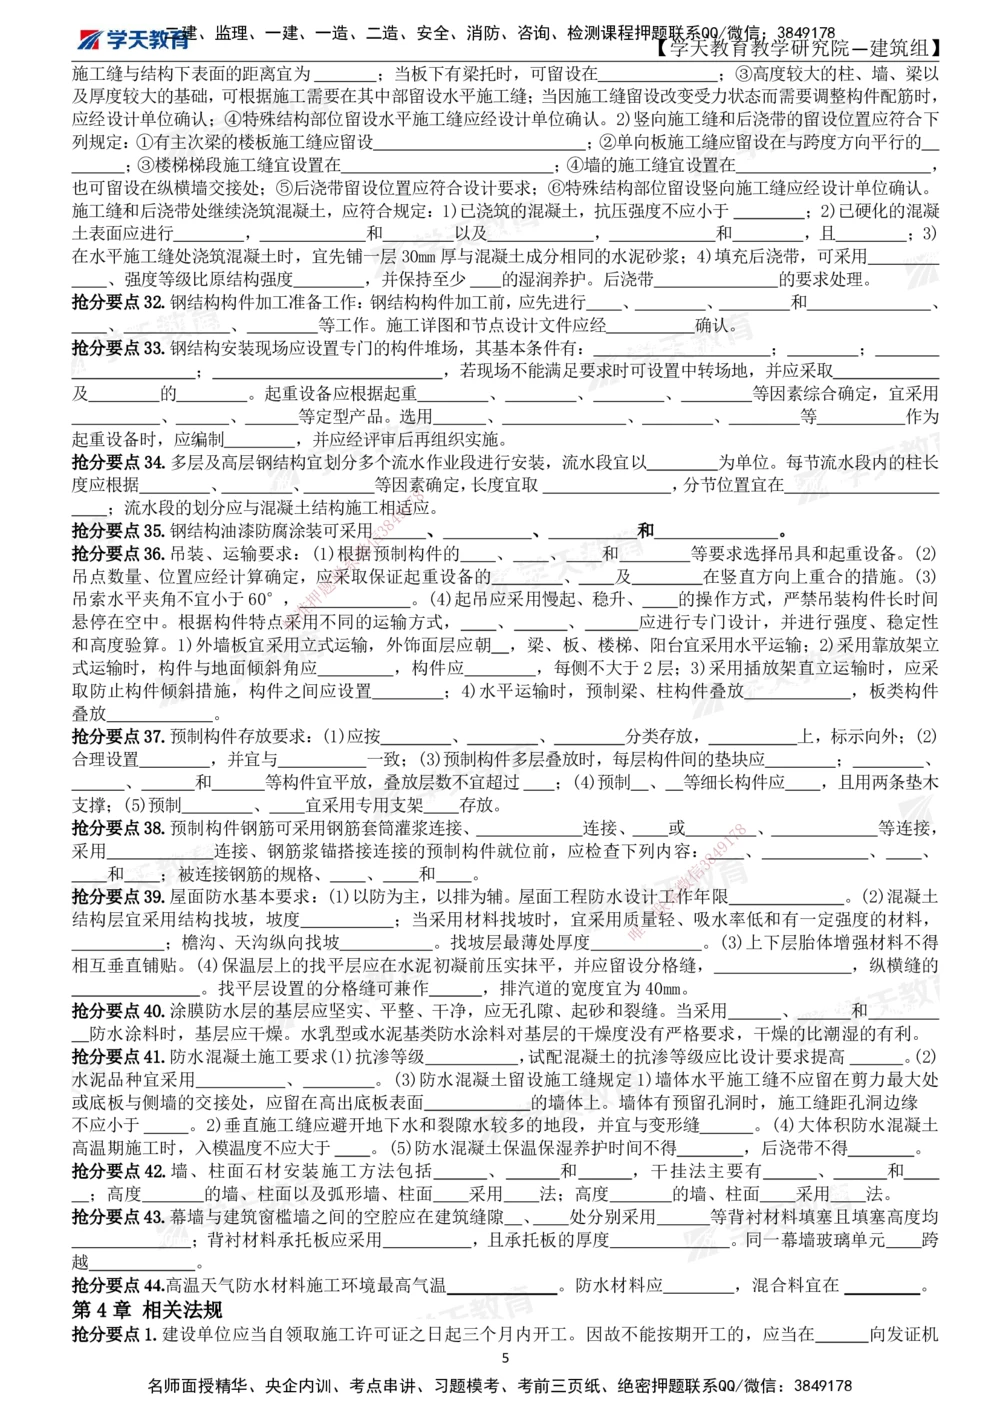 二建、监理、一建、一造、二造、安全、消防、咨询、检测课程押题联系QQ/微信：3849178
学天教育
【学天教育教学研究院—建筑组】
施工缝与结构下表面的距离宜为_______；当板下有梁托时，可留设在_____________；③高度较大的柱、墙、梁以
及厚度较大的基础，可根据施工需要在其中部留设水平施工缝；当因施工缝留设改变受力状态而需要调整构件配筋时，
应经设计单位确认；④特殊结构部位留设水平施工缝应经设计单位确认。2)竖向施工缝和后浇带的留设位置应符合下
列规定：①有主次梁的楼板施工缝应留设________________________；②单向板施工缝应留设在与跨度方向平行的__
______；③楼梯梯段施工缝宜设置在________________________；④墙的施工缝宜设置在______________________，
也可留设在纵横墙交接处；⑤后浇带留设位置应符合设计要求；⑥特殊结构部位留设竖向施工缝应经设计单位确认。
施工缝和后浇带处继续浇筑混凝土，应符合规定：1)已浇筑的混凝土，抗压强度不应小于________；2)已硬化的混凝
土表面应进行________，____________和________以及____________，____________和________，且________；3)
在水平施工缝处浇筑混凝土时，宜先铺一层 30mm 厚与混凝土成分相同的水泥砂浆；4)填充后浇带，可采用________
____、强度等级比原结构强度________，并保持至少____的湿润养护。后浇带______________的要求处理。
抢分要点 32. 钢结构构件加工准备工作：钢结构构件加工前，应先进行____、________、________和______________、
____、____________、________等工作。施工详图和节点设计文件应经__________确认。
抢分要点 33. 钢结构安装现场应设置专门的构件堆场，其基本条件有：____________________；________；_______
______________；__________________________，若现场不能满足要求时可设置中转场地，并应采取____________
及________的________。起重设备应根据起重________、________、________、________等因素综合确定，宜采用
__________、______、______等定型产品。选用______、______________、________、________等__________作为
起重设备时，应编制________，并应经评审后再组织实施。
抢分要点 34. 多层及高层钢结构宜划分多个流水作业段进行安装，流水段宜以________为单位。每节流水段内的柱长
度应根据________、________、________等因素确定，长度宜取______________，分节位置宜在_________________
____；流水段的划分应与混凝土结构施工相适应。
抢分要点 35. 钢结构油漆防腐涂装可采用______、__________、__________和______________。
抢分要点 36. 吊装、运输要求：(1)根据预制构件的____、____、____和________等要求选择吊具和起重设备。(2)
吊点数量、位置应经计算确定，应采取保证起重设备的________、____及________在竖直方向上重合的措施。(3)
吊索水平夹角不宜小于 60°，____________。(4)起吊应采用慢起、稳升、____的操作方式，严禁吊装构件长时间
悬停在空中。根据构件特点采用不同的运输方式，____、______、______应进行专门设计，并进行强度、稳定性
和高度验算。1)外墙板宜采用立式运输，外饰面层应朝__，梁、板、楼梯、阳台宜采用水平运输；2)采用靠放架立
式运输时，构件与地面倾斜角应________，构件应________，每侧不大于 2 层；3)采用插放架直立运输时，应采
取防止构件倾斜措施，构件之间应设置________；4)水平运输时，预制梁、柱构件叠放____________，板类构件
叠放____________。
抢分要点 37. 预制构件存放要求：(1)应按________、________、________分类存放，__________上，标示向外；(2)
合理设置________，并宜与__________一致；(3)预制构件多层叠放时，每层构件间的垫块应________；________、
______、______和______等构件宜平放，叠放层数不宜超过____；(4)预制__、__等细长构件应____，且用两条垫木
支撑；(5)预制________、____宜采用专用支架____存放。
抢分要点 38. 预制构件钢筋可采用钢筋套筒灌浆连接、____________连接、____或________、____________等连接，
采用____________连接、钢筋浆锚搭接连接的预制构件就位前，应检查下列内容：____、____________、____、
____和____；被连接钢筋的规格、____、____和____。
抢分要点 39. 屋面防水基本要求：(1)以防为主，以排为辅。屋面工程防水设计工作年限____________。(2)混凝土
结构层宜采用结构找坡，坡度__________；当采用材料找坡时，宜采用质量轻、吸水率低和有一定强度的材料，
__________；檐沟、天沟纵向找坡__________。找坡层最薄处厚度____________。(3)上下层胎体增强材料不得
相互垂直铺贴。(4)保温层上的找平层应在水泥初凝前压实抹平，并应留设分格缝，_______________，纵横缝的
______________。找平层设置的分格缝可兼作______，排汽道的宽度宜为 40mm。
抢分要点 40. 涂膜防水层的基层应坚实、平整、干净，应无孔隙、起砂和裂缝。当采用______、______和________
__防水涂料时，基层应干燥。水乳型或水泥基类防水涂料对基层的干燥度没有严格要求，干燥的比潮湿的有利。
抢分要点 41. 防水混凝土施工要求(1)抗渗等级__________，试配混凝土的抗渗等级应比设计要求提高______。(2)
水泥品种宜采用__________、________。(3)防水混凝土留设施工缝规定 1)墙体水平施工缝不应留在剪力最大处
或底板与侧墙的交接处，应留在高出底板表面____________的墙体上。墙体有预留孔洞时，施工缝距孔洞边缘
不应小于_____。2)垂直施工缝应避开地下水和裂隙水较多的地段，并宜与变形缝______。(4)大体积防水混凝土
高温期施工时，入模温度不应大于____。(5)防水混凝土保温保湿养护时间不得________，后浇带不得________。
抢分要点 42. 墙、柱面石材安装施工方法包括______、______和______，干挂法主要有______、______和____
__；高度_______的墙、柱面以及弧形墙、柱面____采用____法；高度_______的墙、柱面____采用____法。
抢分要点 43. 幕墙与建筑窗槛墙之间的空腔应在建筑缝隙__、____处分别采用______等背衬材料填塞且填塞高度均
_____________；背衬材料承托板应采用__________，且承托板的厚度_____________。同一幕墙玻璃单元____跨
越____________。
抢分要点 44.高温天气防水材料施工环境最高气温____________。防水材料应________，混合料宜在________。
第 4 章 相关法规
抢分要点 1. 建设单位应当自领取施工许可证之日起三个月内开工。因故不能按期开工的，应当在______向发证机
5
名师面授精华、央企内训、考点串讲、习题模考、考前三页纸、绝密押题联系QQ/微信：3849178